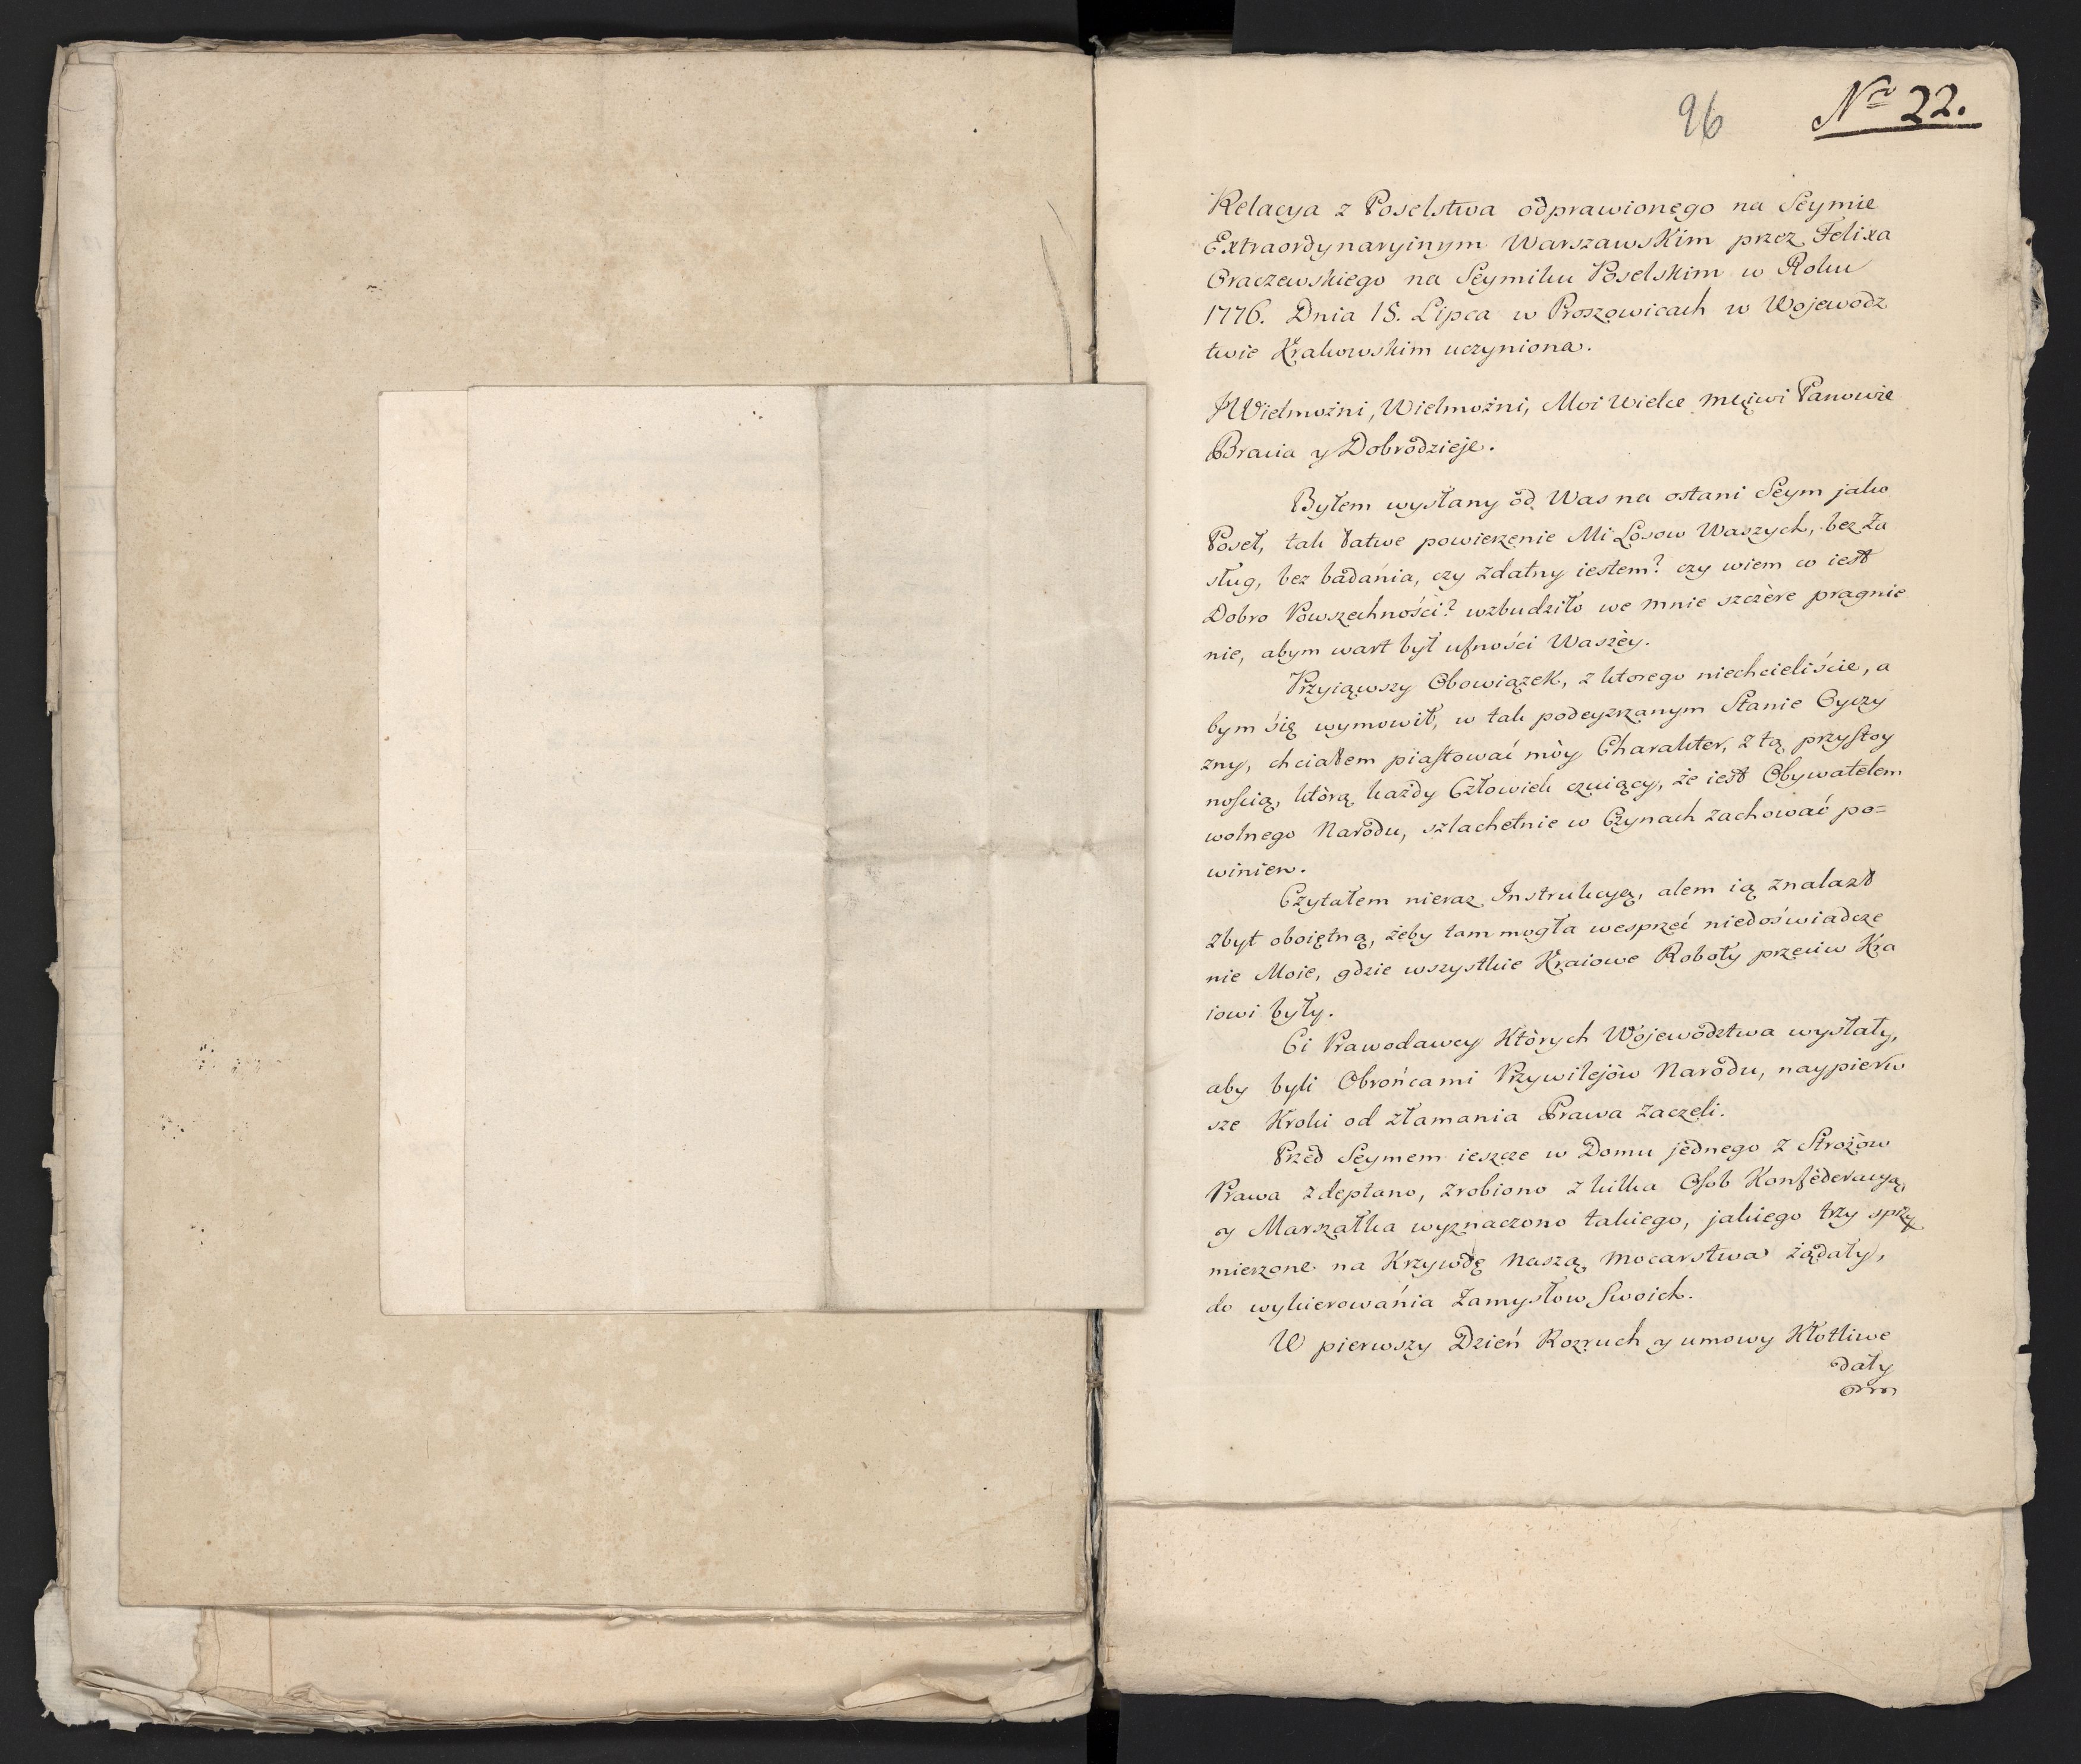 96
Nro 22.
Relacya z Poselstwa odprawionego na Seymie
Extraordynaryinym Warszawskim przez Felixa
Oraczewskiego na Seymiku Poselskim w Roku
1776. Dnia 15. Lipca w Proszowicach w Wojewodz
twie Krakowskim uczyniona.
JWielmożni, Wielmożni, Moi Wielce Mciwi Panowie
Bracia y Dobrodzieje.
Byłem wysłany od Was na ostani Seym jako
Poseł, tak łatwe powierzenie Mi Losow Waszych, bez Za
sług, bez badánia, czy zdatny iestem? czy wiem co iest
Dobro Powszechności? wzbudziło we mnie szczère pragnie
nie, abym wart był ufności Waszèy.
Przyiąwszy Obowiązek, z ktorego niechcieliście, a
bym się wymowił, w tak podeyzrzanym Stanie Oyczy
zny, chciałem piastować mòy Charakter, z tą przystoy
nością, którą każdy Człowiek czuiący, że iest Obywatelem
wolnego Narodu, szlachetnie w Czynach zachować po=
winien.
Czytałem nieraz Instrukcyą, alem ią znalazł
zbyt oboiętną, żeby tam mogła wesprzeć niedoświadcze
nie Moie, gdzie wszystkie Kraiowe Roboty przeciw Kra
iowi były.
Ci Prawodawcy Których Wojewodztwa wysłały,
aby byli Obrońcami Przywilejòw Narodu, naypierw
sze Kroki od złamania Prawa zaczeli.
Przed Seymem ieszcze w Domu jednego z Strożow
Prawa zdeptano, zrobiono z kilka Osob Konfederacyą,
y Marszałka wyznaczono takiego, jakiego trzy sprzy
mierzone na Krzywdę Naszą Mocarstwa żądały,
do wykierowánia Zamysłow Swoich.
W pierwszy Dzień Rozruch y umowy Kłotliwe
dały